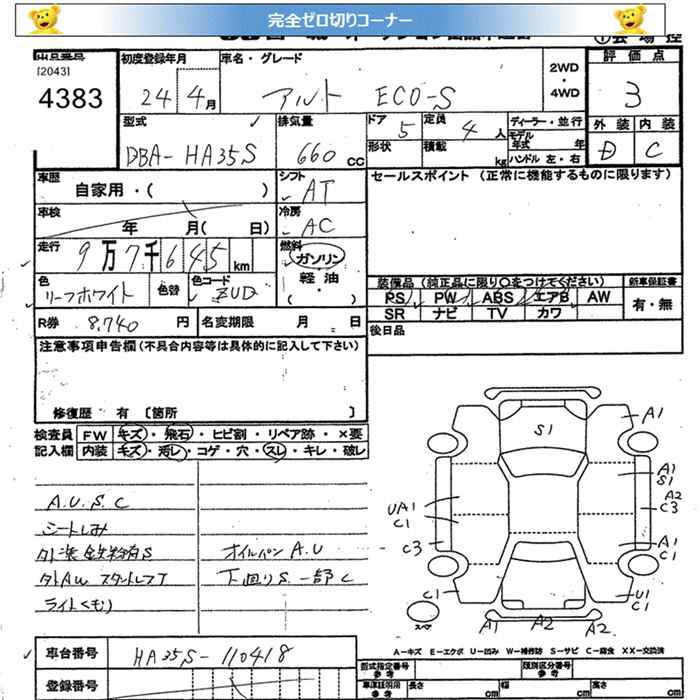 完全ゼロ切りコーナー
[2043]
4383
初度登録年月
24 4月
車名・グレード
アルト ECO-S
2WD
・
4WD
評価点
3
外装 内装
D C
型式
DBA- HA35S
排気量
660 cc
ドア 5
形状
定員 4 人
積載 kg
ディーラー・並行
モデル年式 年式
ハンドル 左・右
車歴
自家用・( )
シフト
AT
セールスポイント (正常に機能するものに限ります)
車検
年 月( 日)
冷房
AC
走行
9万7千645km
燃料
ガソリン
軽油
( )
色
リーフホワイト
色替
色コード
ZUD
装備品(純正品に限り○をつけてください)
新車保証書
PS PW ABS エアB AW
SR ナビ TV カワ
有・無
R券 8,740 円
名変期限 月 日
後日品
注意事項申告欄(不具合内容等は具体的に記入して下さい)
修復歴 有 〔箇所 〕
検査員 FW キズ・飛石・ヒビ割・リペア跡・×要
記入欄 内装 キズ・汚レ・コゲ・穴・スレ・キレ・破レ
A.U.S.C
シートしみ
外装鉄粉有S
外AW スタットレスT
ライトくもり
オイルパン A.U
下回りS. 一部C
S1
A1
A1
S1
A2
C3
UA1
C1
C3
A1
C1
C1
U1
C1
A1 A2 A2
スペア
A-キズ E-エクボ U-凹み W-補修跡 S-サビ C-腐食 XX-交換済
車台番号
HA35S-110418
登録番号
型式指定番号
参考
類別区分番号
参考
車庫証明用
参考
長さ cm
幅 cm
高さ cm